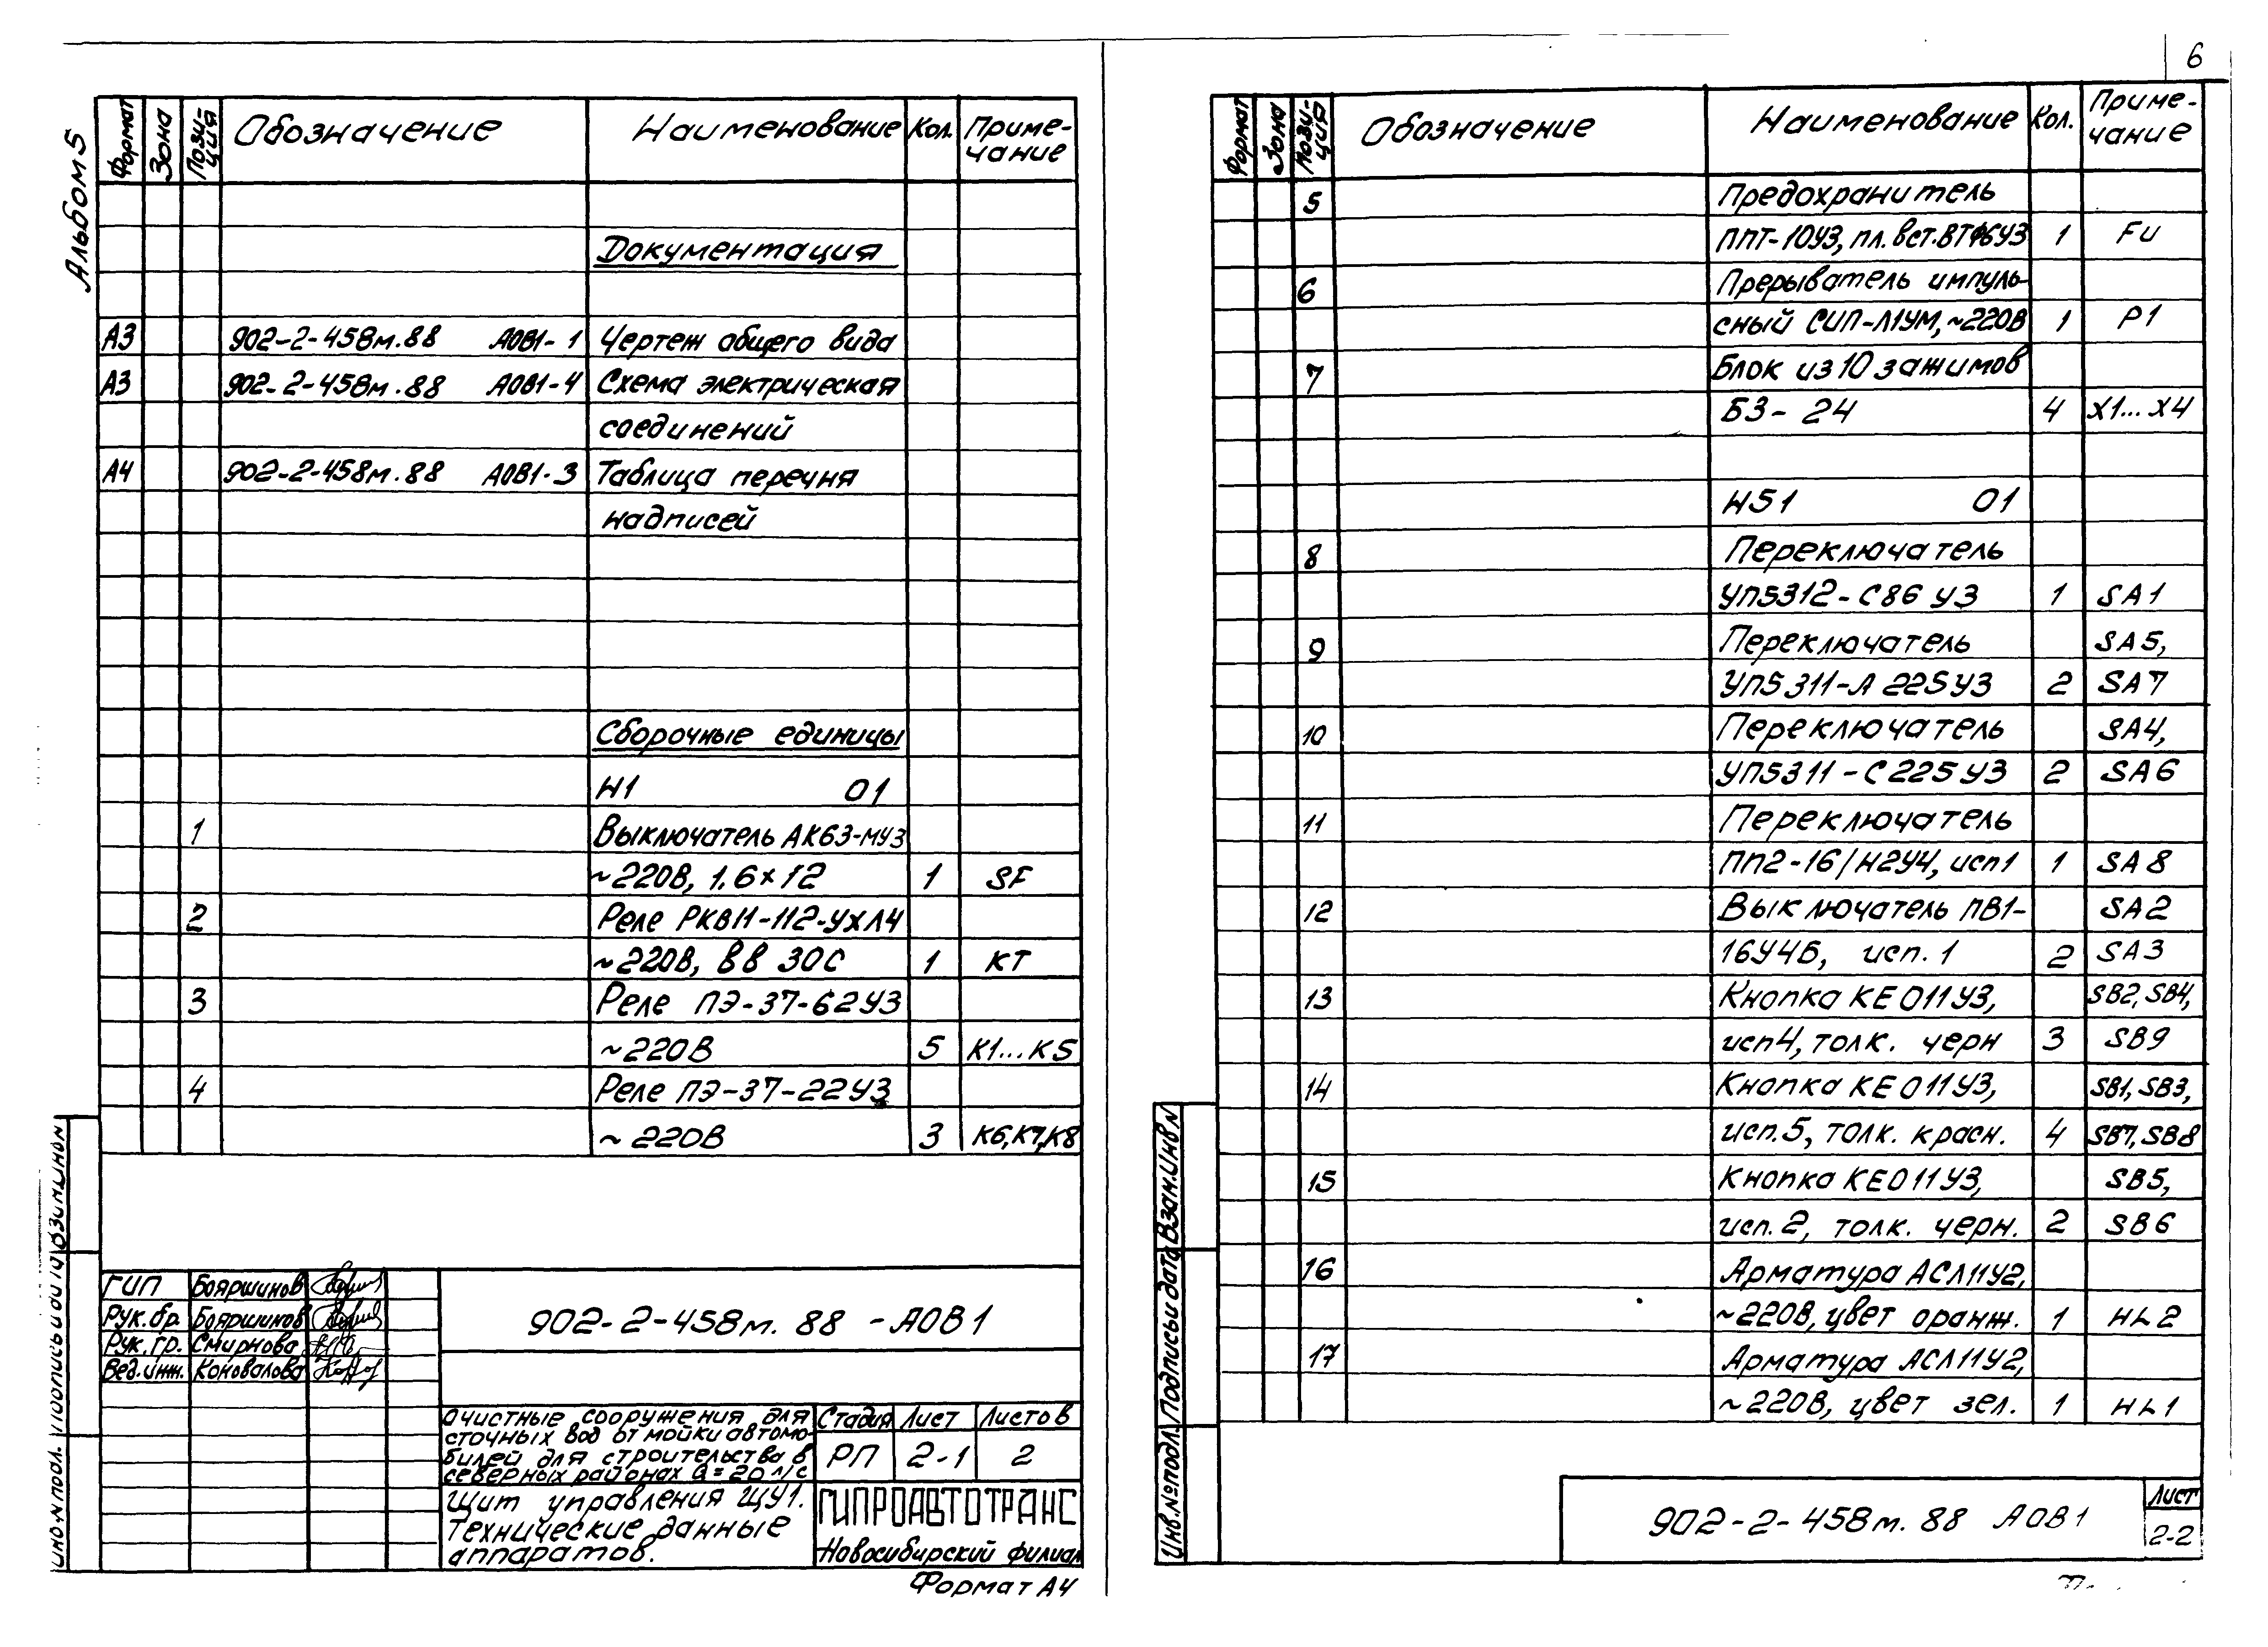 6
Альбом 5
Формат Зона Пози-ция Обозначение Наименование Кол. Приме-чание
Документация
А3 902-2-458м.88 АОВ1-1 Чертеж общего вида
А3 902-2-458м.88 АОВ1-4 Схема электрическая
соединений
А4 902-2-458м.88 АОВ1-3 Таблица перечня
надписей
Сборочные единицы
Н1 01
1 Выключатель АК63-МУ3
~220В, 1.6×12 1 SF
2 Реле РКВ11-112-УХЛ4
~220В, ВВ 30С 1 КТ
3 Реле ПЭ-37-62У3
~220В 5 К1...К5
4 Реле ПЭ-37-22У3
~220В 3 К6,К7,К8
ГИП Бояршинов
Рук.бр. Бояршинов
Рук.гр. Смирнова
Вед.инж. Коновалова
902-2-458м.88 -АОВ1
Очистные сооружения для
сточных вод от мойки автомо-
билей для строительства в
северных районах Q=20 л/с
Стадия Лист Листов
РП 2-1 2
Щит управления ЩУ1.
Технические данные
аппаратов.
ГИПРОАВТОТРАНС
Новосибирский филиал
Формат А4
Формат Зона Пози-ция Обозначение Наименование Кол. Приме-чание
5 Предохранитель
ППТ-10У3, пл.вст.ВТФ6У3 1 FU
6 Прерыватель импуль-
сный СИП-Л1УМ,~220В 1 Р1
7 Блок из 10 зажимов
БЗ-24 4 Х1...Х4
Н51 01
8 Переключатель
УП5312-С86 У3 1 SA1
9 Переключатель SA5,
УП5311-Л225У3 2 SA7
10 Переключатель SA4,
УП5311-С225У3 2 SA6
11 Переключатель
ПП2-16/Н2У4, исп1 1 SA8
12 Выключатель ПВ1- SA2
16У4Б, исп.1 2 SA3
13 Кнопка КЕ011У3, SB2, SB4,
исп4, толк. черн 3 SB9
14 Кнопка КЕ011У3, SB1, SB3,
исп.5, толк. красн. 4 SB7, SB8
15 Кнопка КЕ011У3, SB5,
исп.2, толк. черн. 2 SB6
16 Арматура АСЛ11У2,
~220В, цвет оранж. 1 HL2
17 Арматура АСЛ11У2,
~220В, цвет зел. 1 HL1
Инв.№подл. Подпись и дата Взам.Инв№
902-2-458м.88 АОВ1
Лист
2-2